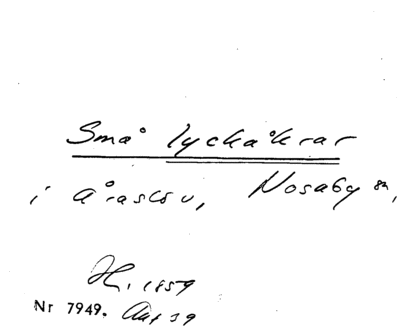 Små lyckåkrar
i Åraslöv, Nosaby sn,
H. 1859
Nr 7949.